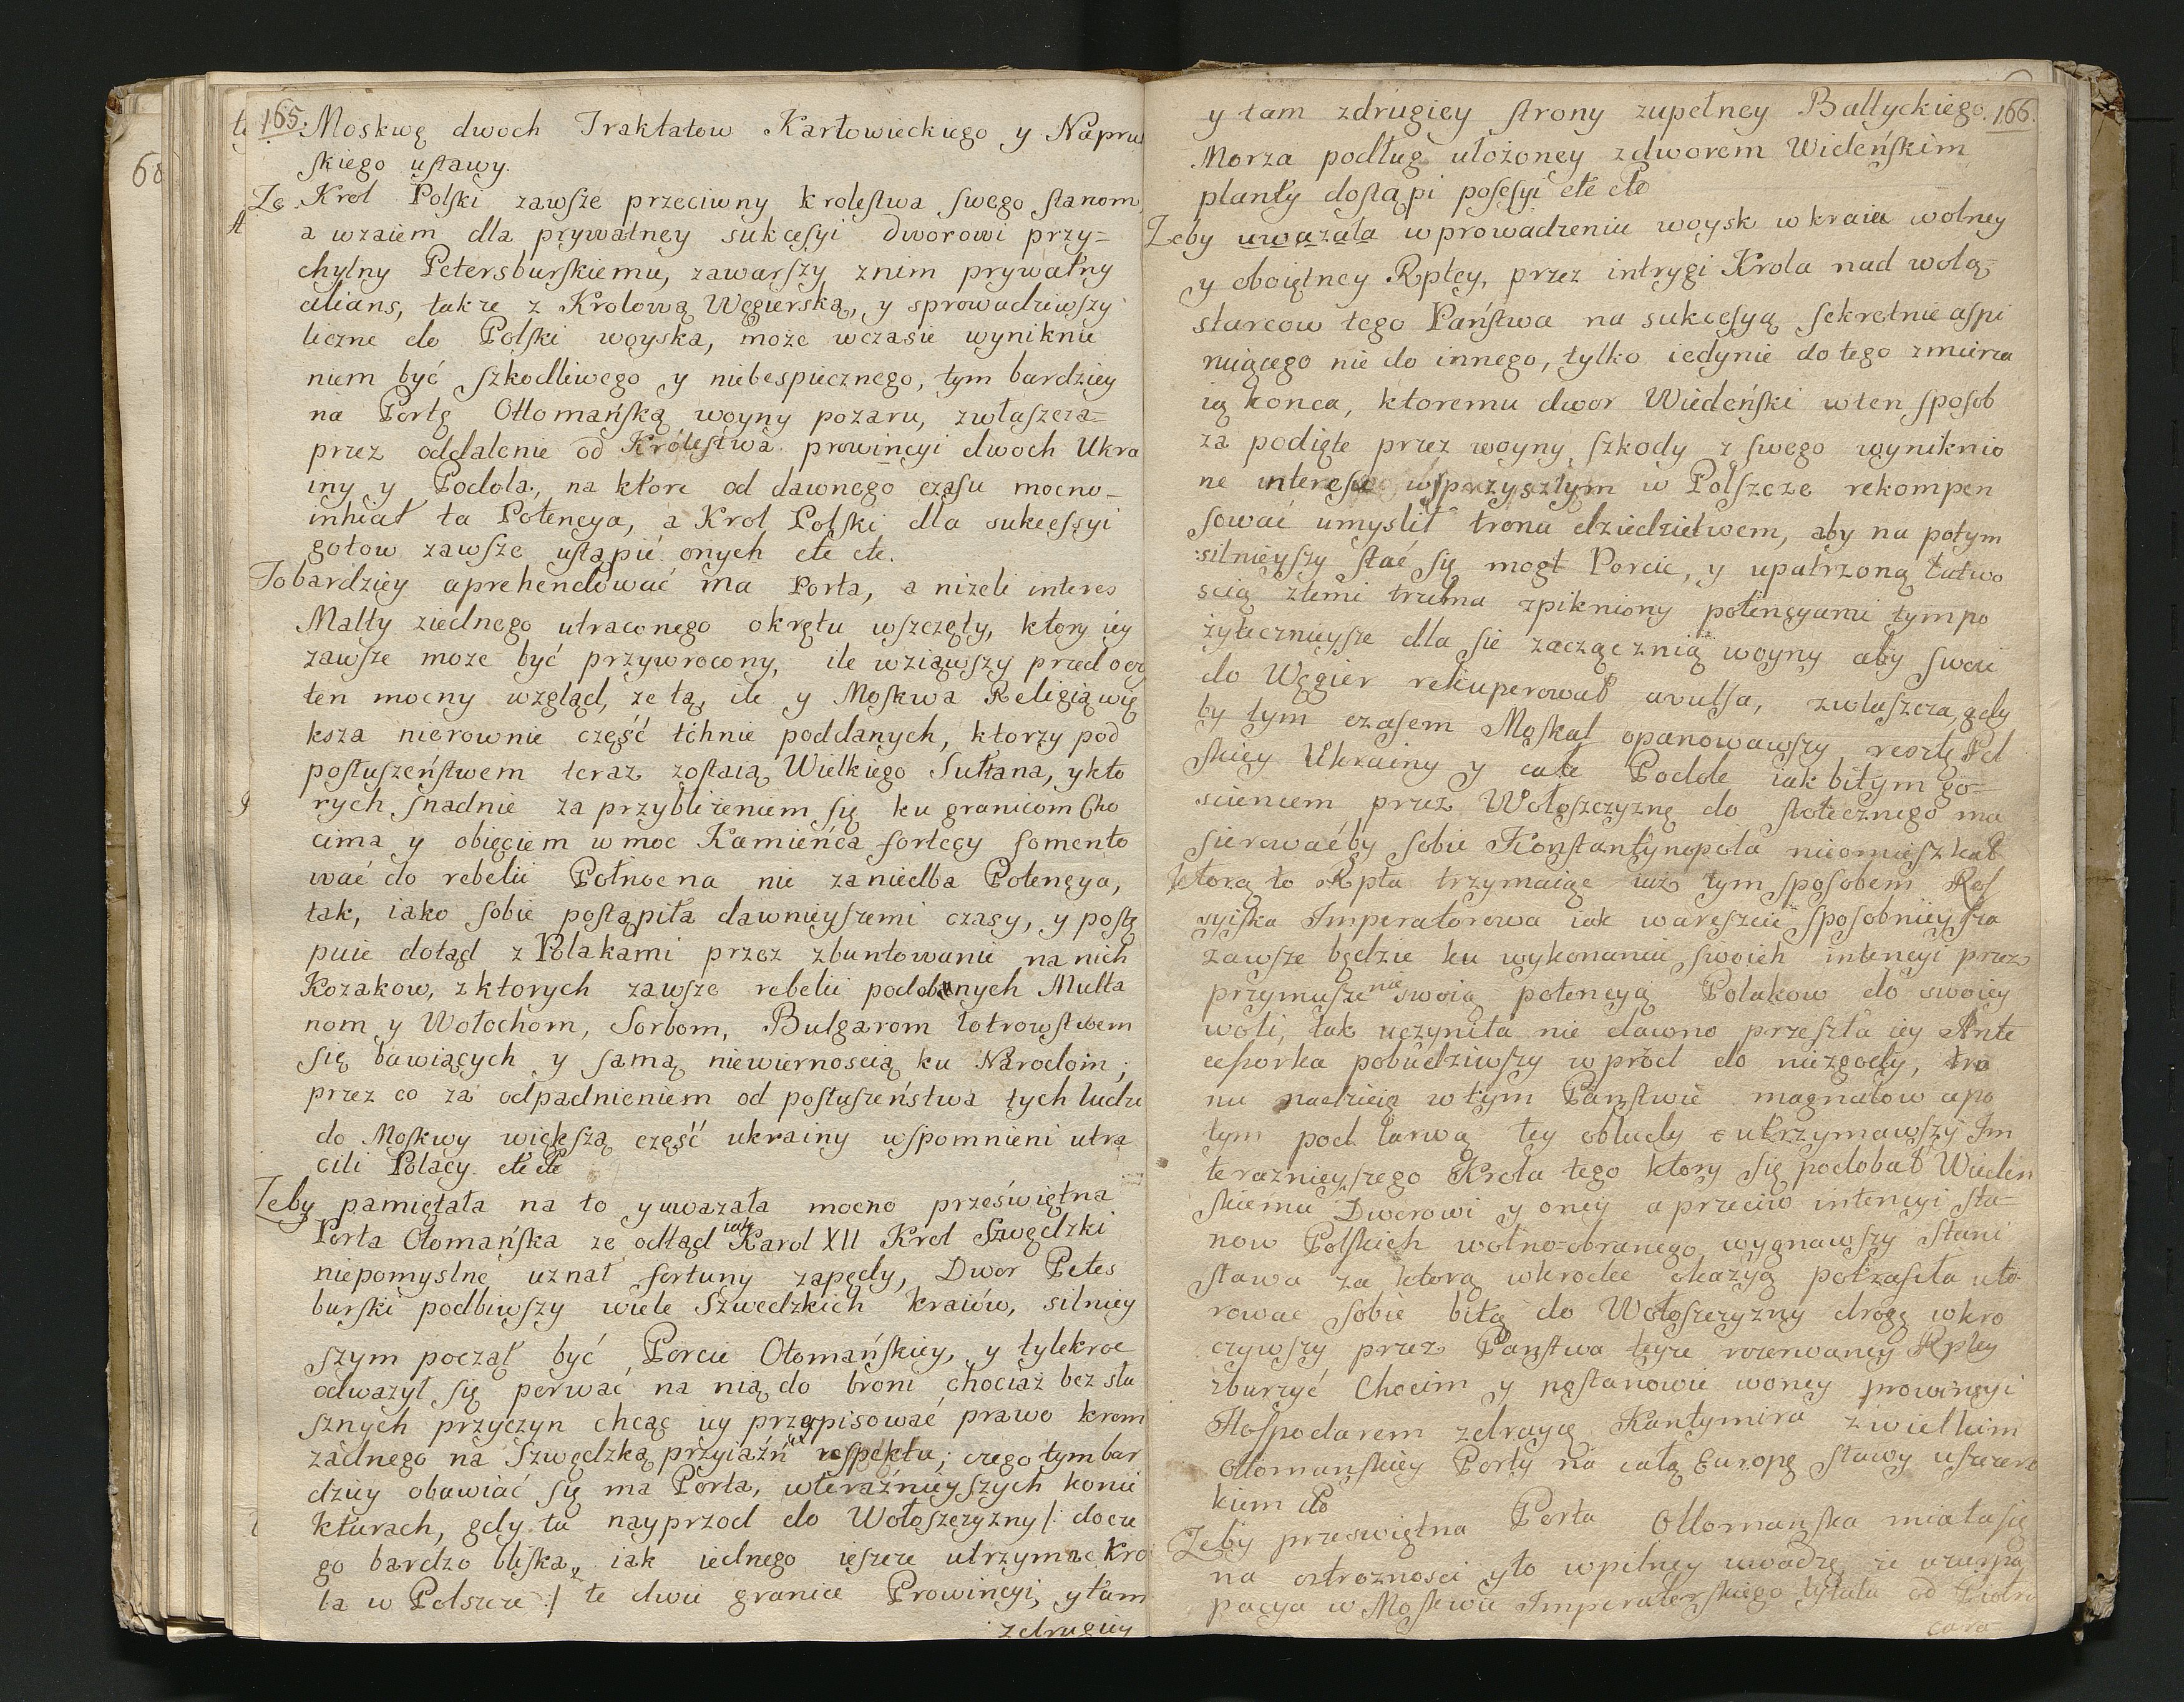 165. Moskwę dwoch Traktatow Karłowieckiego y Napru
skiego ustawy.
Ze Krol Polski zawsze przeciwny krolestwa swego stanom
a wzaiem dla prywatney sukcesyi Dworowi przy=
chylny Petersburskiemu, zawarszy znim prywatny
alians, także z Krolową Węgierską, y sprowadziwszy
liczne do Polski woyska, może wczasie wyniknie
niem być szkodliwego y niebespiecznego, tym bardziey
na Portę Ottomańską woyny pozaru, zwłaszcza=
przez oddalenie od Królestwa prowincyi dwoch Ukra
iny y Podola, na ktore od dawnego czasu mocno=
inhiat ta Potencya, a Krol Polski dla sukcessyi
gotow zawsze ustąpić onych etc etc.
To bardziey aprehendować ma Porta, a nizeli interes
Malty ziednego utraconego okrętu wszczęty, ktory iey
zawsze moze być przywrocony, ile wziąwszy przed oczy
ten mocny wzgląd, ze tą, ile y Moskwa Religią wię
ksza nierownie część tchnie poddanych, ktorzy pod
posłuszeństwem teraz zostaią Wielkiego Sułtana, y kto
rych snadnie za przybliżeniem się ku granicom Cho
cima y obięciem w moc Kamieńca fortecy fomento
wać do rebelii Połnocna nie zaniedba Potencya,
tak, iako sobie postąpiła dawnieyszemi czasy, y postę
puie dotąd z Polakami przez zbuntowanie na nich
Kozakow, z ktorych zawsze rebelii podobnych Multa
nom y Wołochom, Sorbom, Bulgarom łotrowstwem
się bawiących y samą niewiernoscią ku Narodom;
przez co za odpadnieniem od posłuszeństwa tych ludzi
do Moskwy większą część ukrainy wspomnieni utra
cili Polacy. etc etc
Żeby pamiętała na to y uwazała mocno przeświętna
Porta Otomańska ze odtąd iak Karol XII Krol Szwedzki
niepomyslne uznał fortuny zapędy, Dwor Peters
burski podbiwszy wiele Szwedzkich kraiów, silniey
szym począł być Porcie Otomańskiey, y tylekroc
odważył się porwać na nią do broni chociaż bez słu
sznych przyczyn chcąc iey przepisować prawo krom
żadnego na Szwedzką przyiaźń ex respektu; czego tym bar
dziey obawiać się ma Porta, wteraźnieyszych konie
kturach, gdy tu nayprzod do Wołoszczyzny /: do cze
go bardzo bliska, iak iednego ieszcze utrzymac Kro
la w Polszcze :/ te dwie granice Prowincyi, y tam
zdrugiey
y tam zdrugiey strony zupełney Baltyckiego 166.
Morza podług ułożoney zdworem Wideńskim
planty dostąpi posesyi etc etc
Zeby uwazała wprowadzeniu woysk w kraia wolney
y oboiętney Rptey, przez intrygi Krola nad wolą
starcow tego Państwa na sukcesyą sekretnie aspi
ruiącego nie do innego, tylko iedynie do tego zmierza
ią konca, ktoremu dwor Wiedeński w ten sposob
za podięte przez woyny szkody z swego wyniknio
ne interesu w przyszłym w Polszcze rekompen
sować umyslił tronu dziedzictwem, aby na potym
silnieyszy stać się mogł Porcie, y upatrzoną łatwo
scią z temi trzema zpikniony potencyami tym po
żytecznieysze dla sie zacząc znią woyny aby swoie
do Węgier rekuperował avulsa, zwłaszcza, gdy
by tym czasem Moskal opanowawszy resztę Pol
skiey Ukrainy y całe Podole iak bitym go=
scieńcem przez Wołoszczyznę do stołecznego ma
sierowaćby sobie Konstantynopola nieomieszkał
ktorą to Rpta trzymaiąc iuż tym sposobem Ros
syiska Imperatorowa iak w areszcie sposobnieysza
zawsze będzie ku wykonaniu swoich intencyi przez
przymuszenie swoią potencyą Polakow do swoiey
woli, tak uczyniła nie dawno przeszła iey Ante
cessorka pobudziwszy w przod do niezgody, tro
nu nadzieią w tym Panstwie magnatow a po
tym pod larwą tey obludy utrzymawszy Im
teraznieyszego Krola tego ktory się podobał Wieden
skiemu Dworowi y oney a przeciw intencyi sta=
now Polskich wolno=obranego wygnawszy Stani
sława za ktorą wkrodce okazyą potrafiła uto
rować sobie bitą do Wołoszczyzny drogę wkro
czywszy przez Panstwa teyze rozerwaney Rptey
zburzyć Chocim y postanowic w oney prowincyi
Hospodarem zdraycę Kantymira z wielkim
Ottomanskiey Porty na całą Europę sławy uszczerb
kiem etc
Żeby przeswiętna Porta Ottomanska miała się
na ostrozności y to w pilney uwadze, że uzurpa
pacya w Moskwie Imperatorskiego tytułu od Piotra
cara